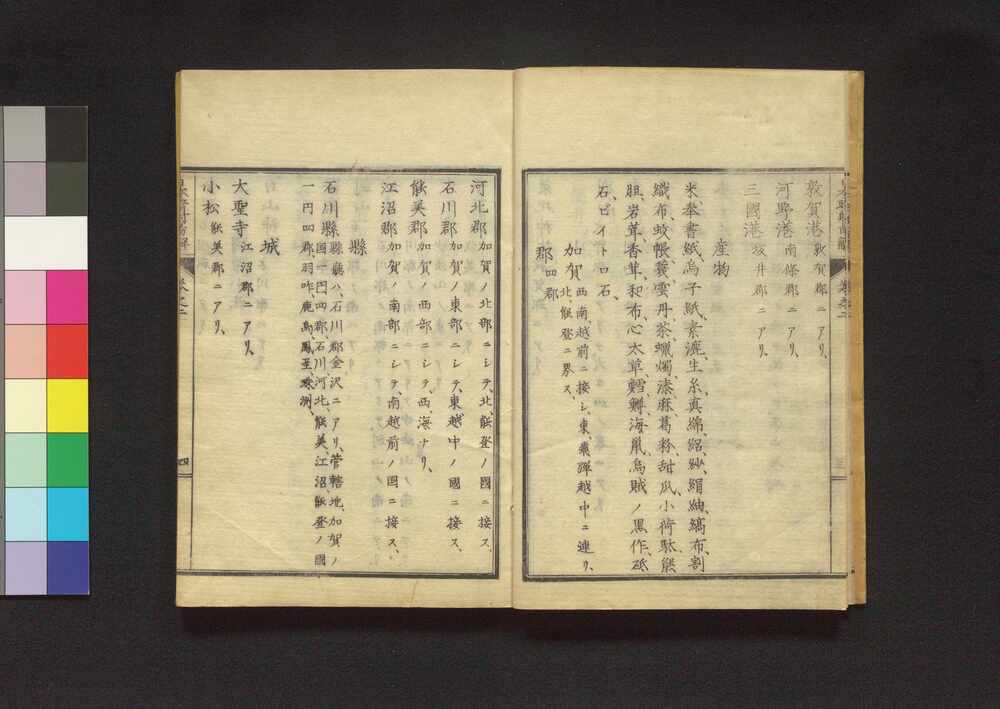 敦賀港 敦賀郡ニアリ、
河野港 南條郡ニアリ、
三國港 坂井郡ニアリ、
産物
米、奉書紙、鳥子紙、素麺、生糸、真綿、絽、紗、絹、紬、縞布、割
織布、蚊帳、蓑、雲丹、茶、蠟燭、漆、麻、葛粉、甜瓜、小荷駄、熊
胆、岩茸、香茸、和布、心太草、鱈、鱒、海鼠、烏賊ノ黒作、砥
石、ビイトロ石、
加賀 西南、越前ニ接シ、東、飛騨越中ニ連リ、
北、能登ニ界ス、
郡 四郡
河北郡 加賀ノ北部ニシテ、北、能登ノ國ニ接ス、
石川郡 加賀ノ東部ニシテ、東越中ノ國ニ接ス、
能美郡 加賀ノ西部ニシテ、西、海ナリ、
江沼郡 加賀ノ南部ニシテ、南越前ノ國ニ接ス、
縣
石川縣 縣廳ハ、石川郡金沢ニアリ、管轄地、加賀ノ
國一円四郡、石川、河北、能美、江沼、能登ノ國
一円四郡、羽咋、鹿島、鳳至、珠洲、
城
大聖寺 江沼郡ニアリ、
小松 能美郡ニアリ、
四